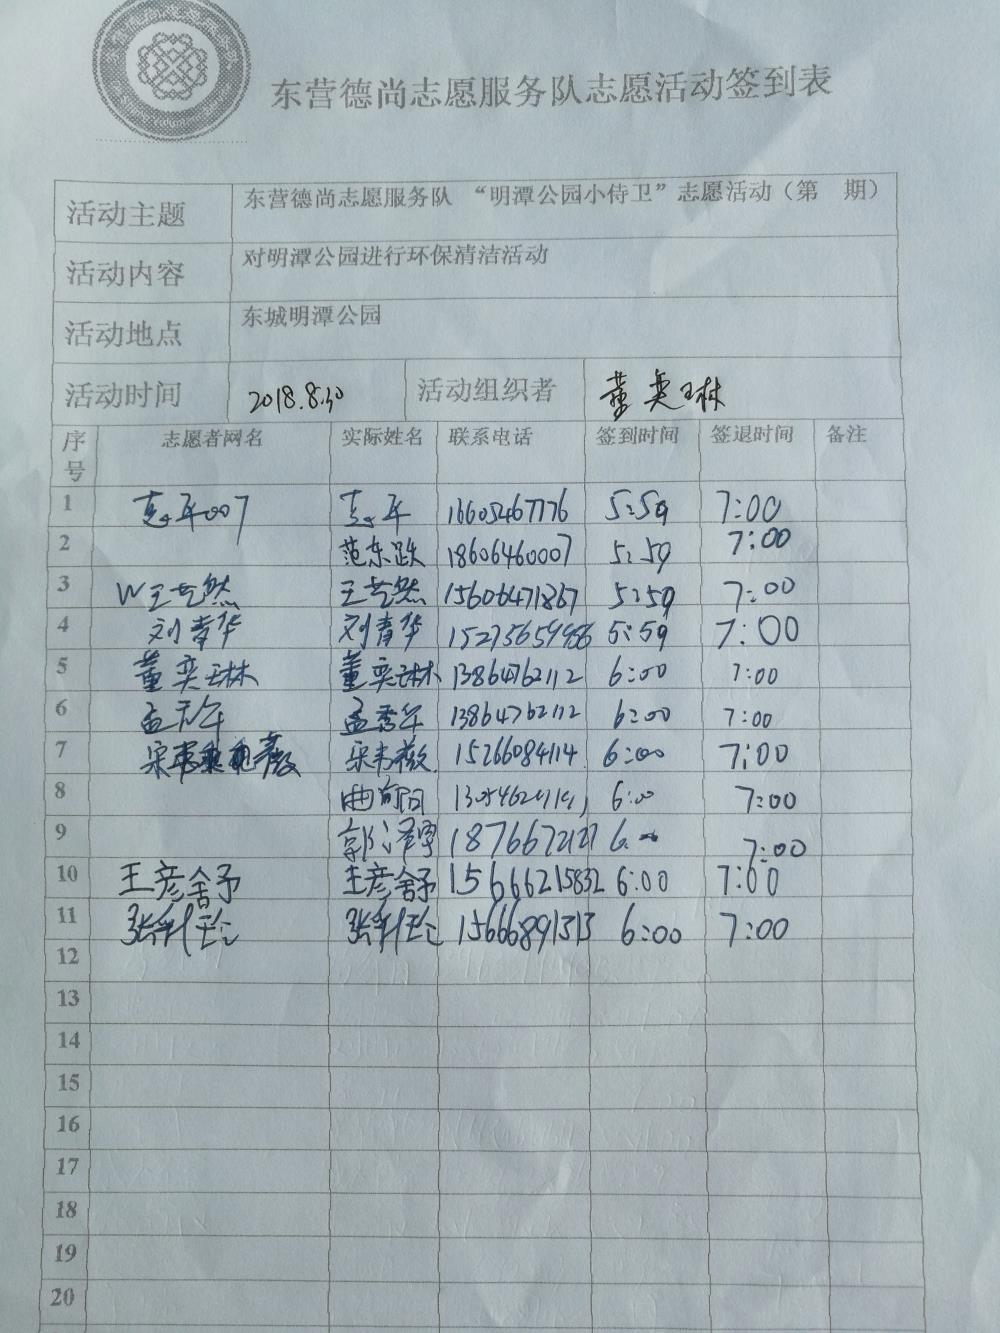 东营德尚志愿服务队志愿活动签到表
活动主题 东营德尚志愿服务队 “明潭公园小侍卫”志愿活动（第 期）
活动内容 对明潭公园进行环保清洁活动
活动地点 东城明潭公园
活动时间 2018.8.30 活动组织者 董奕琳
序号 志愿者网名 实际姓名 联系电话 签到时间 签退时间 备注
1 16605467776 5:59 7:00
2 18606460007 5:59 7:00
3 W王艺然 王艺然 15606471867 5:59 7:00
4 刘青华 刘青华 5:59 7:00
5 董奕琳 董奕琳 13864762112 6:00 7:00
6 孟秀年 13864762112 6:00 7:00
7 宋韦薇 15266084114 6:00 7:00
8 6:00 7:00
9 郭泽宇 18766672127 6:00 7:00
10 王彦舍予 王彦舍予 15666215832 6:00 7:00
11 15666891313 6:00 7:00
12
13
14
15
16
17
18
19
20